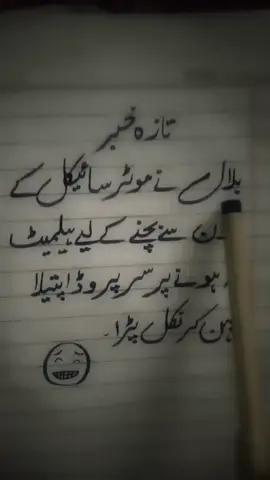 تازہ خبر
بلال نے موٹر سائیکل کے
سے بچنے کے لیے ہیلمیٹ
ہونے پر سر پر وڈا پتیلا
کر نکل پڑا۔